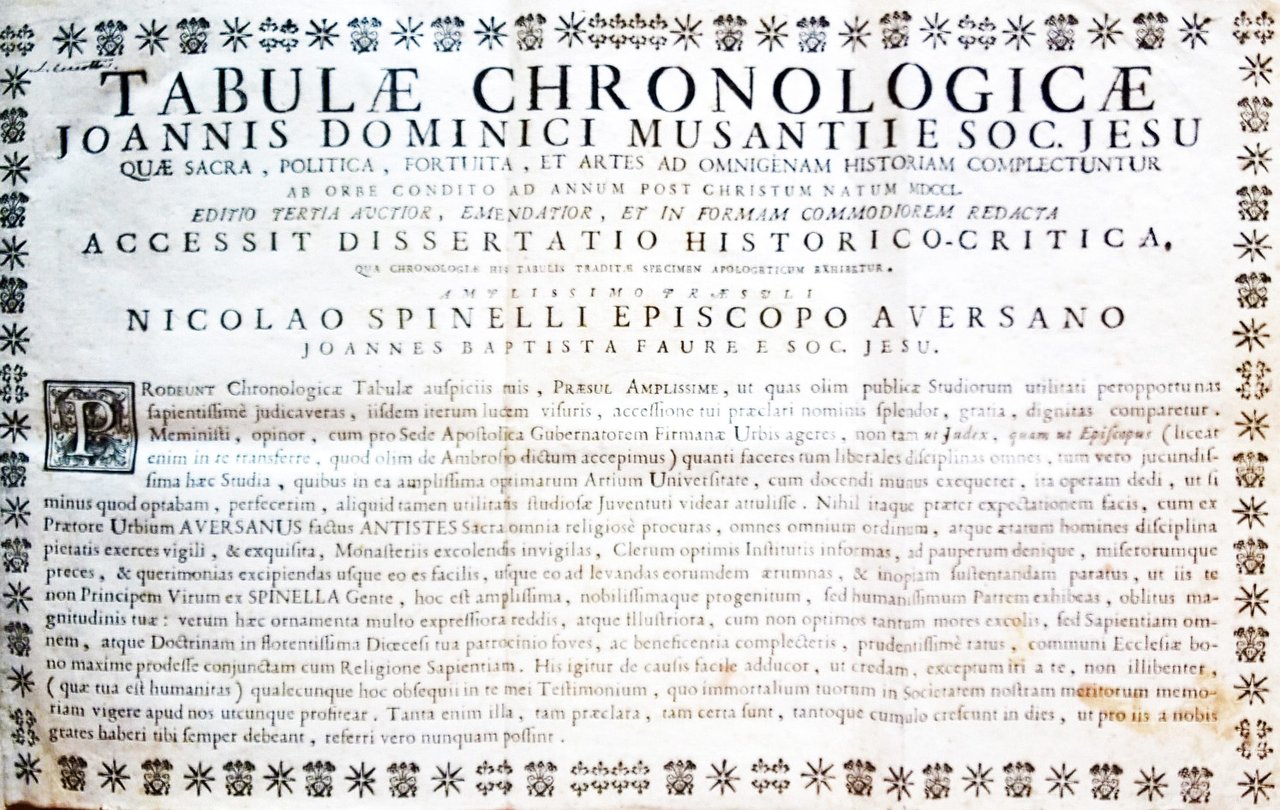 TABULÆ CHRONOLOGICÆ
JOANNIS DOMINICI MUSANTII E SOC. JESU
QUÆ SACRA, POLITICA, FORTUITA, ET ARTES AD OMNIGENAM HISTORIAM COMPLECTUNTUR
AB ORBE CONDITO AD ANNUM POST CHRISTUM NATUM MDCCL.
EDITIO TERTIA AVCTIOR, EMENDATIOR, ET IN FORMAM COMMODIOREM REDACTA
ACCESSIT DISSERTATIO HISTORICO-CRITICA,
QUA CHRONOLOGIÆ HIS TABULIS TRADITÆ SPECIMEN APOLOGETICUM EXHIBETUR.
AMPLISSIMO PRÆSULI
NICOLAO SPINELLI EPISCOPO AVERSANO
JOANNES BAPTISTA FAURE E SOC. JESU.
PRODEUNT Chronologicæ Tabulæ auſpiciis tuis, PRÆSUL AMPLISSIME, ut quas olim publicæ Studiorum utilitati peropportunas
ſapientiſſimè judicaveras, iiſdem iterum lucem viſuris, acceſſione tui præclari nominis ſplendor, gratia, dignitas comparetur.
Meminiſti, opinor, cum pro Sede Apoſtolica Gubernatorem Firmanæ Urbis ageres, non tam ut Judex, quam ut Epiſcopus (liceat
enim in te transferre, quod olim de Ambroſio dictum accepimus) quanti faceres tum liberales diſciplinas omnes, tum vero jucundiſ-
ſima hæc Studia, quibus in ea ampliſſima optimarum Artium Univerſitate, cum docendi munus exequerer, ita operam dedi, ut ſi
minus quod optabam, perfecerim, aliquid tamen utilitatis ſtudioſæ Juventuti videar attuliſſe. Nihil itaque præter expectationem facis, cum ex
Prætore Urbium AVERSANUS factus ANTISTES Sacra omnia religiosè procuras, omnes omnium ordinum, atque ætatum homines diſciplina
pietatis exerces vigili, & exquiſita, Monaſteriis excolendis invigilas, Clerum optimis Inſtitutis informas, ad pauperum denique, miſerorumque
preces, & querimonias excipiendas uſque eo es facilis, uſque eo ad levandas eorumdem ærumnas, & inopiam ſuſtentandam paratus, ut iis te
non Principem Virum ex SPINELLA Gente, hoc eſt ampliſſima, nobiliſſimaque progenitum, ſed humaniſſimum Patrem exhibeas, oblitus ma-
gnitudinis tuæ: verum hæc ornamenta multo expreſſiora reddis, atque Illuſtriora, cum non optimos tantum mores excolis, ſed Sapientiam om-
nem, atque Doctrinam in florentiſſima Diœceſi tua patrocinio foves, ac beneficentia complecteris, prudentiſſimè ratus, communi Eccleſiæ bo-
no maxime prodeſſe conjunctam cum Religione Sapientiam. His igitur de cauſis facile adducor, ut credam, exceptum iri a te, non illibenter,
(quæ tua eſt humanitas) qualecunque hoc obſequii in te mei Teſtimonium, quo immortalium tuorum in Societatem noſtram meritorum memo-
riam vigere apud nos utcunque profitear. Tanta enim illa, tam præclara, tam certa ſunt, tantoque cumulo creſcunt in dies, ut pro iis a nobis
grates haberi tibi ſemper debeant, referri vero nunquam poſſint.